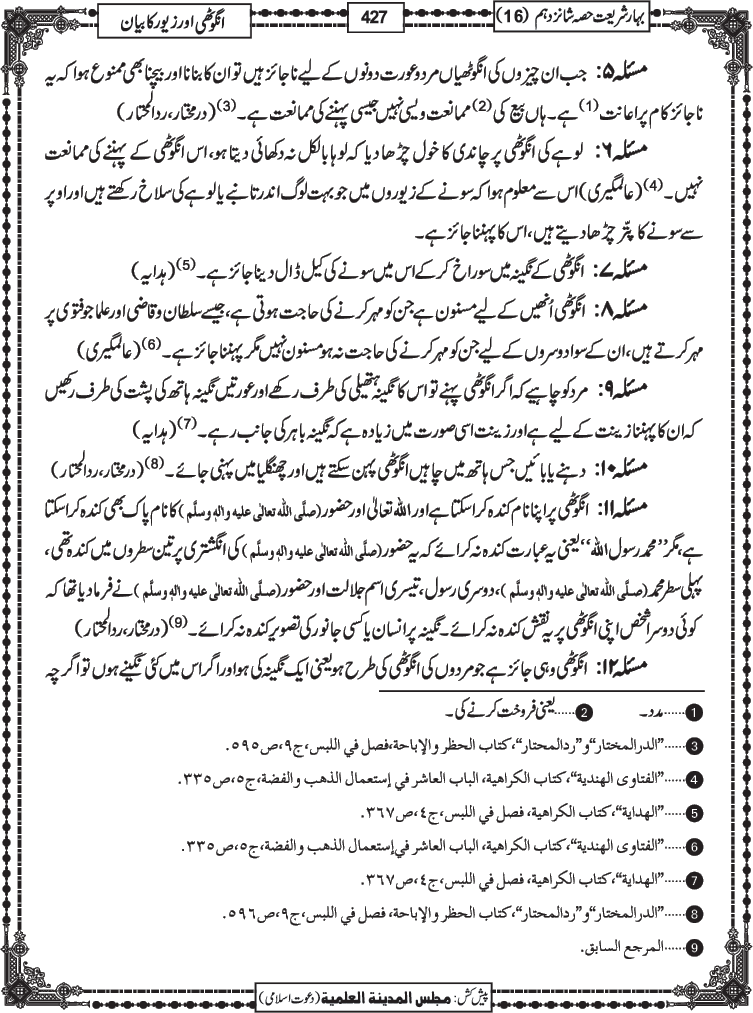 بہارشریعت حصہ شانزدہم (16)
427
انگوٹھی اور زیور کا بیان
مسئلہ ۵: جب ان چیزوں کی انگوٹھیاں مرد و عورت دونوں کے لیے ناجائز ہیں تو ان کا بنانا اور بیچنا بھی ممنوع ہوا کہ یہ
ناجائز کام پر اعانت (1) ہے۔ ہاں بیع کی (2) ممانعت ویسی نہیں جیسی پہننے کی ممانعت ہے۔ (3) (درمختار، ردالمحتار)
مسئلہ ۶: لوہے کی انگوٹھی پر چاندی کا خول چڑھا دیا کہ لوہا بالکل نہ دکھائی دیتا ہو، اس انگوٹھی کے پہننے کی ممانعت
نہیں۔ (4) (عالمگیری) اس سے معلوم ہوا کہ سونے کے زیوروں میں جو بہت لوگ اندر تانبے یا لوہے کی سلاخ رکھتے ہیں اور اوپر
سے سونے کا پتّر چڑھا دیتے ہیں، اس کا پہننا جائز ہے۔
مسئلہ ۷: انگوٹھی کے نگینہ میں سوراخ کرکے اس میں سونے کی کیل ڈال دینا جائز ہے۔ (5) (ہدایہ)
مسئلہ ۸: انگوٹھی اُنھیں کے لیے مسنون ہے جن کو مہر کرنے کی حاجت ہوتی ہے، جیسے سلطان و قاضی اور علما جو فتویٰ پر
مہر کرتے ہیں، ان کے سوا دوسروں کے لیے جن کو مہر کرنے کی حاجت نہ ہو مسنون نہیں مگر پہننا جائز ہے۔ (6) (عالمگیری)
مسئلہ ۹: مرد کو چاہیے کہ اگر انگوٹھی پہنے تو اس کا نگینہ ہتھیلی کی طرف رکھے اور عورتیں نگینہ ہاتھ کی پشت کی طرف رکھیں
کہ ان کا پہننا زینت کے لیے ہے اور زینت اسی صورت میں زیادہ ہے کہ نگینہ باہر کی جانب رہے۔ (7) (ہدایہ)
مسئلہ ۱۰: دہنے یا بائیں جس ہاتھ میں چاہیں انگوٹھی پہن سکتے ہیں اور چھنگلیا میں پہنی جائے۔ (8) (درمختار، ردالمحتار)
مسئلہ ۱۱: انگوٹھی پر اپنا نام کندہ کرا سکتا ہے اور اللہ تعالیٰ اور حضور (صلَّی اللہ تعالٰی علیہ واٰلہٖ وسلَّم) کا نام پاک بھی کندہ کرا سکتا
ہے، مگر ’’محمد رسول اللہ‘‘ یعنی یہ عبارت کندہ نہ کرائے کہ یہ حضور (صلَّی اللہ تعالٰی علیہ واٰلہٖ وسلَّم) کی انگشتری پر تین سطروں میں کندہ تھی،
پہلی سطر محمد (صلَّی اللہ تعالٰی علیہ واٰلہٖ وسلَّم)، دوسری رسول، تیسری اسم جلالت اور حضور (صلَّی اللہ تعالٰی علیہ واٰلہٖ وسلَّم) نے فرما دیا تھا کہ
کوئی دوسرا شخص اپنی انگوٹھی پر یہ نقش کندہ نہ کرائے۔ نگینہ پر انسان یا کسی جانور کی تصویر کندہ نہ کرائے۔ (9) (درمختار، ردالمحتار)
مسئلہ ۱۲: انگوٹھی وہی جائز ہے جو مردوں کی انگوٹھی کی طرح ہو یعنی ایک نگینہ کی ہو اور اگر اس میں کئی نگینے ہوں تو اگر چہ
1......مدد۔ 2......یعنی فروخت کرنے کی۔
3......"الدرالمختار" و "ردالمحتار"، كتاب الحظر والإباحة، فصل في اللبس، ج۹، ص۵۹۵.
4......"الفتاوى الهندية"، كتاب الكراهية، الباب العاشر في إستعمال الذهب والفضة، ج۵، ص۳۳۵.
5......"الهداية"، كتاب الكراهية، فصل في اللبس، ج٤، ص۳٦۷.
6......"الفتاوى الهندية"، كتاب الكراهية، الباب العاشر في إستعمال الذهب والفضة، ج۵، ص۳۳۵.
7......"الهداية"، كتاب الكراهية، فصل في اللبس، ج٤، ص۳٦۷.
8......"الدرالمختار" و "ردالمحتار"، كتاب الحظر والإباحة، فصل في اللبس، ج۹، ص۵۹٦.
9......المرجع السابق.
پیش کش: مجلس المدینة العلمیة (دعوتِ اسلامی)